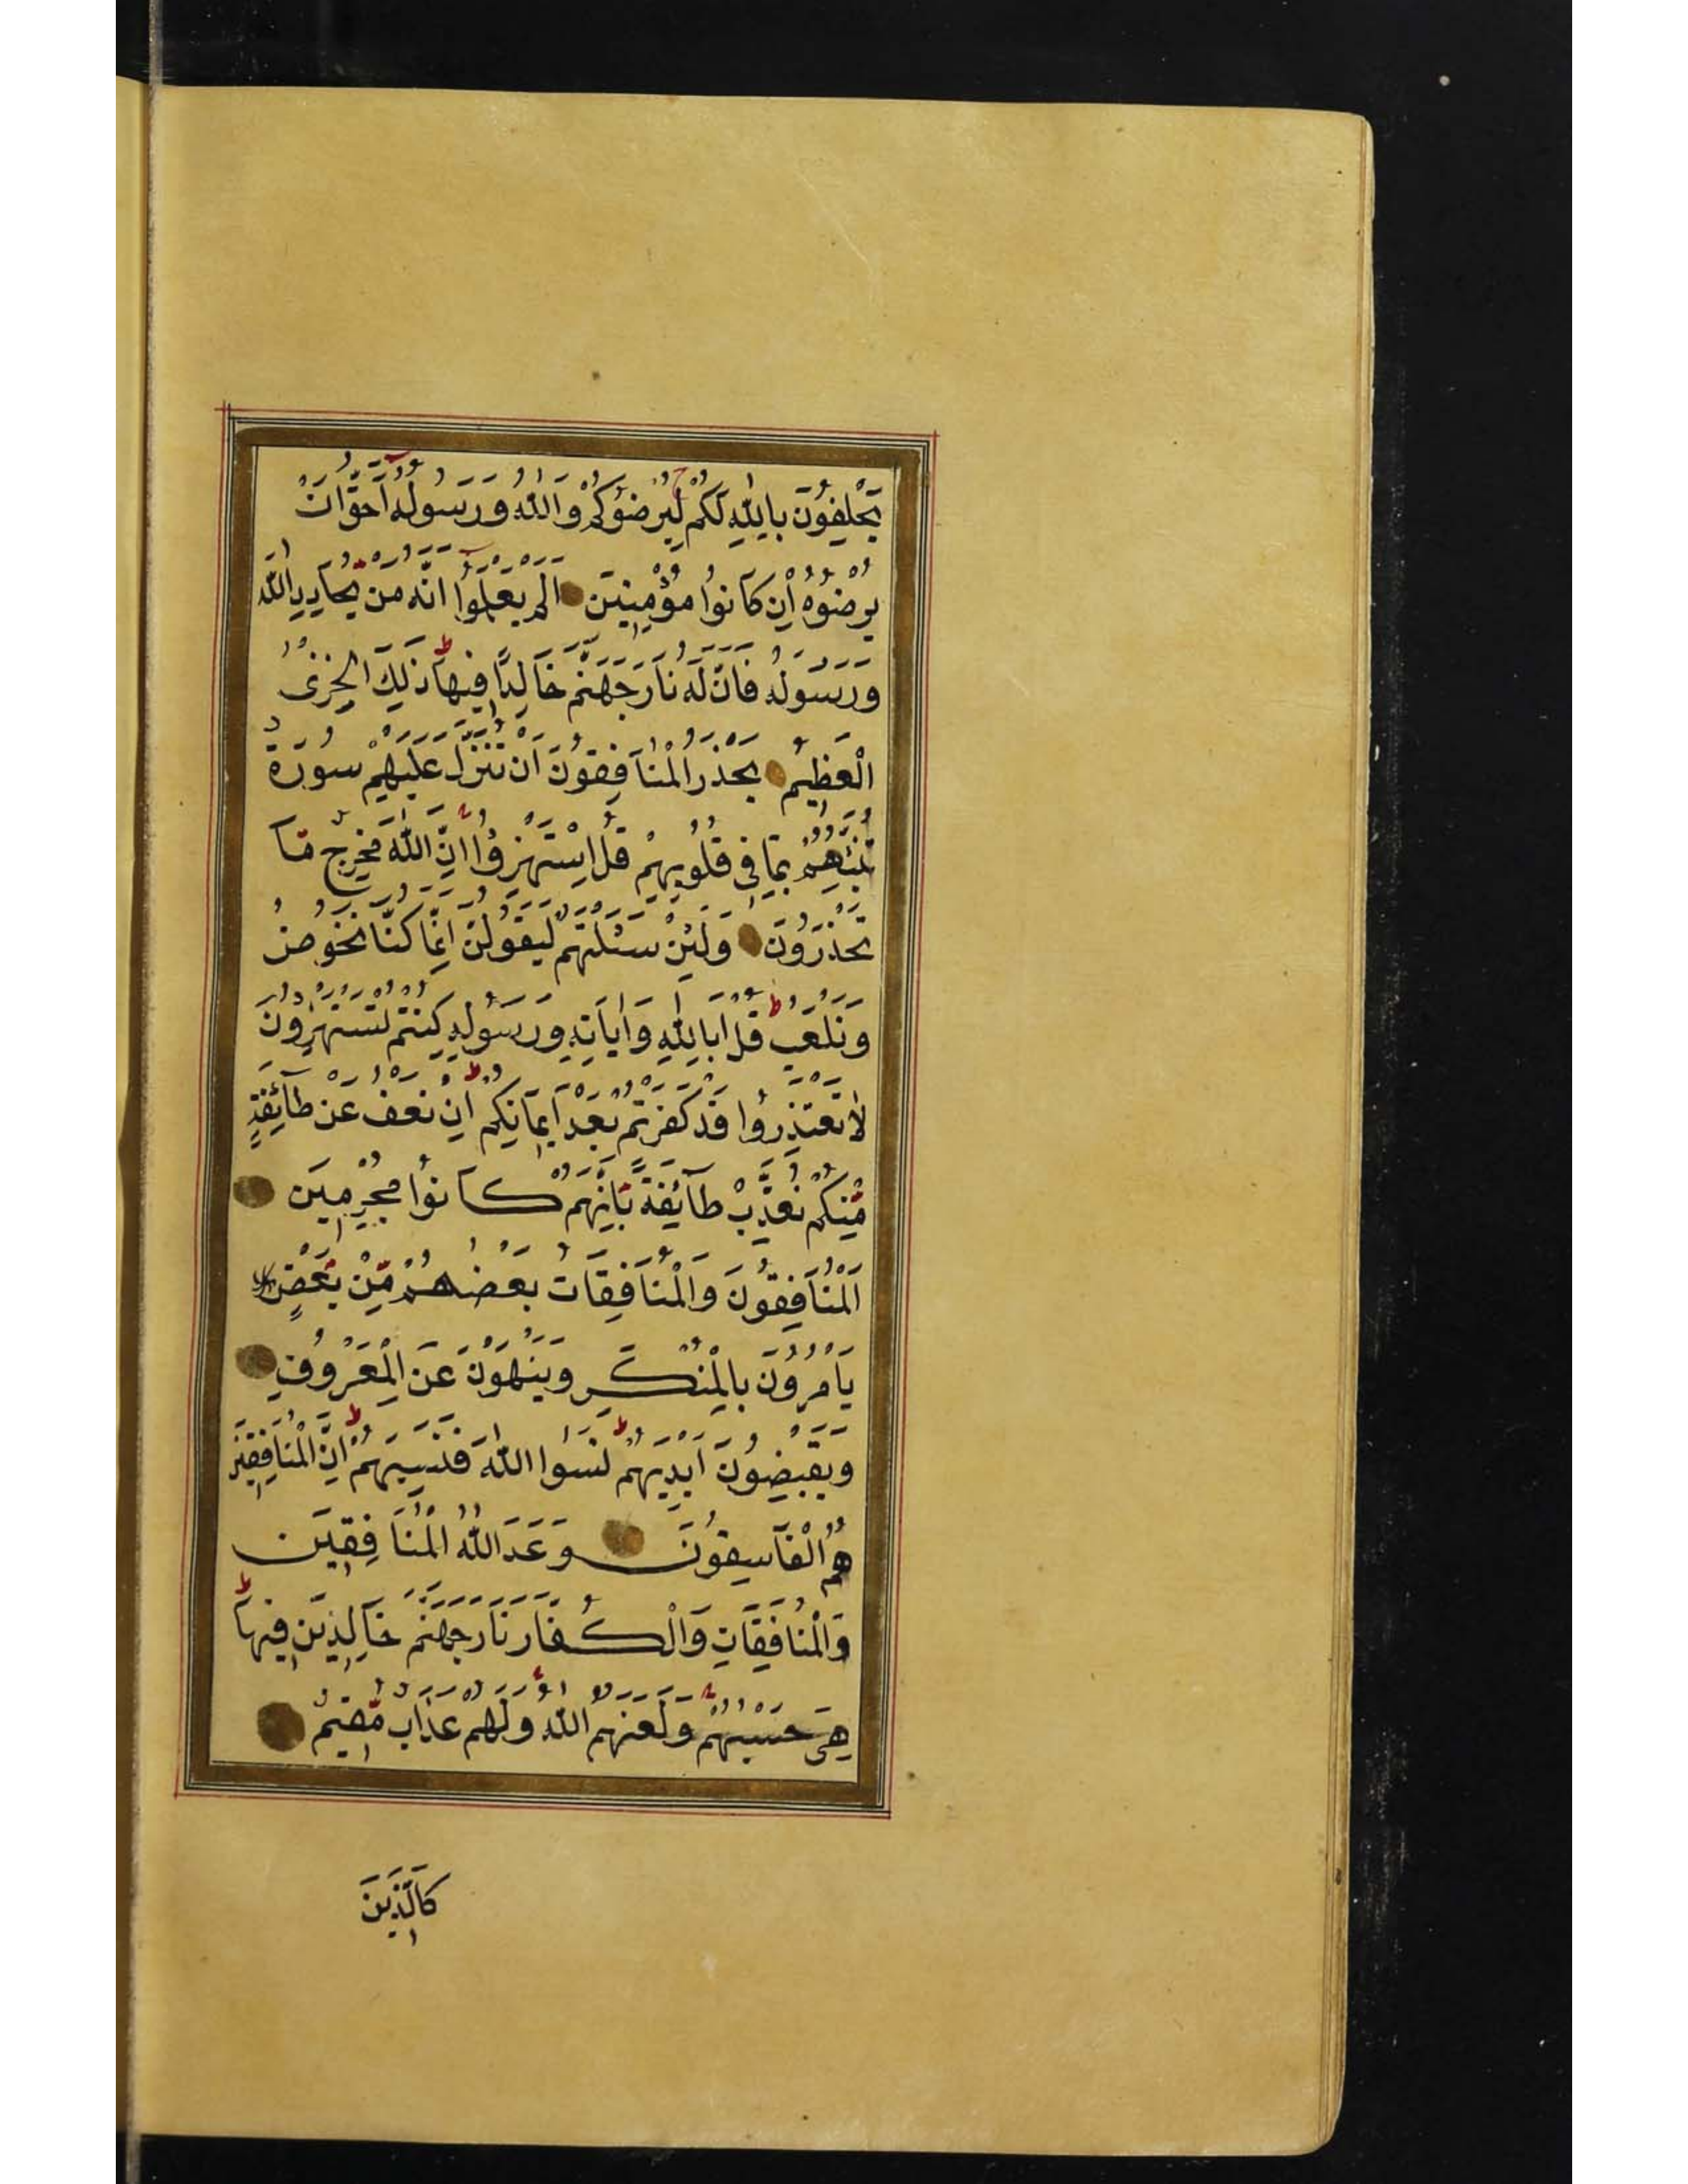 يَحْلِفُونَ بِاللّٰهِ لَكُمْ لِيُرْضُوكُمْ وَاللّٰهُ وَرَسُولُهُ اَحَقُّ اَنْ
يُرْضُوهُ اِنْ كَانُوا مُؤْمِنِينَ اَلَمْ يَعْلَمُوا اَنَّهُ مَنْ يُحَادِدِ اللّٰهَ
وَرَسُولَهُ فَاَنَّ لَهُ نَارَ جَهَنَّمَ خَالِدًا فِيهَا ذٰلِكَ الْخِزْىُ
الْعَظِيمُ يَحْذَرُ الْمُنَافِقُونَ اَنْ تُنَزَّلَ عَلَيْهِمْ سُورَةٌ
تُنَبِّئُهُمْ بِمَا فِى قُلُوبِهِمْ قُلِ اسْتَهْزِؤُا اِنَّ اللّٰهَ مُخْرِجٌ مَّا
تَحْذَرُونَ وَلَئِنْ سَئَلْتَهُمْ لَيَقُولُنَّ اِنَّمَا كُنَّا نَخُوضُ
وَنَلْعَبُ قُلْ اَبِاللّٰهِ وَاٰيَاتِهِ وَرَسُولِهِ كُنْتُمْ تَسْتَهْزِؤُنَ
لَا تَعْتَذِرُوا قَدْ كَفَرْتُمْ بَعْدَ اِيمَانِكُمْ اِنْ نَعْفُ عَنْ طَآئِفَةٍ
مِّنْكُمْ نُعَذِّبْ طَآئِفَةً بِاَنَّهُمْ كَانُوا مُجْرِمِينَ
اَلْمُنَافِقُونَ وَالْمُنَافِقَاتُ بَعْضُهُمْ مِّنْ بَعْضٍ
يَاْمُرُونَ بِالْمُنْكَرِ وَيَنْهَوْنَ عَنِ الْمَعْرُوفِ
وَيَقْبِضُونَ اَيْدِيَهُمْ نَسُوا اللّٰهَ فَنَسِيَهُمْ اِنَّ الْمُنَافِقِينَ
هُمُ الْفَاسِقُونَ وَعَدَ اللّٰهُ الْمُنَافِقِينَ
وَالْمُنَافِقَاتِ وَالْكُفَّارَ نَارَ جَهَنَّمَ خَالِدِينَ فِيهَا
هِىَ حَسْبُهُمْ وَلَعَنَهُمُ اللّٰهُ وَلَهُمْ عَذَابٌ مُّقِيمٌ
كَالَّذِينَ